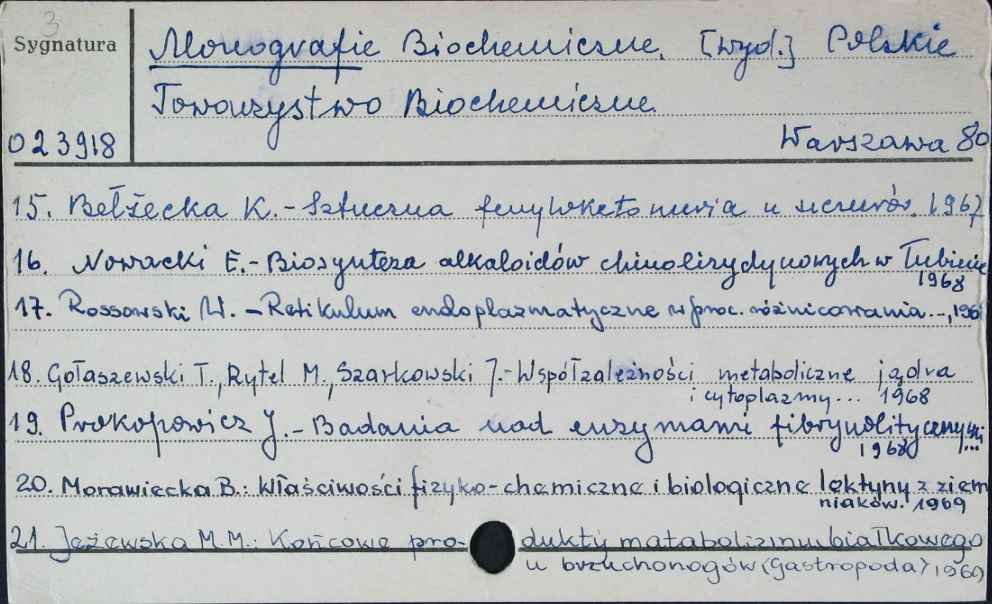 3
Sygnatura
Monografie Biochemiczne. [wyd.] Polskie
Towarzystwo Biochemiczne.
023918
Warszawa 80
15. Bełżecka K. - Sztuczna fenyloketonuria u szczurów. 1967
16. Nowacki E. - Biosynteza alkaloidów chinolizydynowych w Łubinie
1968
17. Rossowski W. - Retikulum endoplazmatyczne w proc. różnicowania..., 196
18. Gołaszewski T., Rytel M., Szarkowski J. - Współzależności metaboliczne jądra
i cytoplazmy... 1968
19. Prokopowicz J. - Badania nad enzymami fibrynolitycznymi
... 1968
20. Morawiecka B.: Właściwości fizyko-chemiczne i biologiczne lektyny z ziem
niaków. 1969
21. Jeżewska M.M.: Końcowe pro- dukty matabolizmu białkowego
u brzuchonogów (Gastropoda) 1969